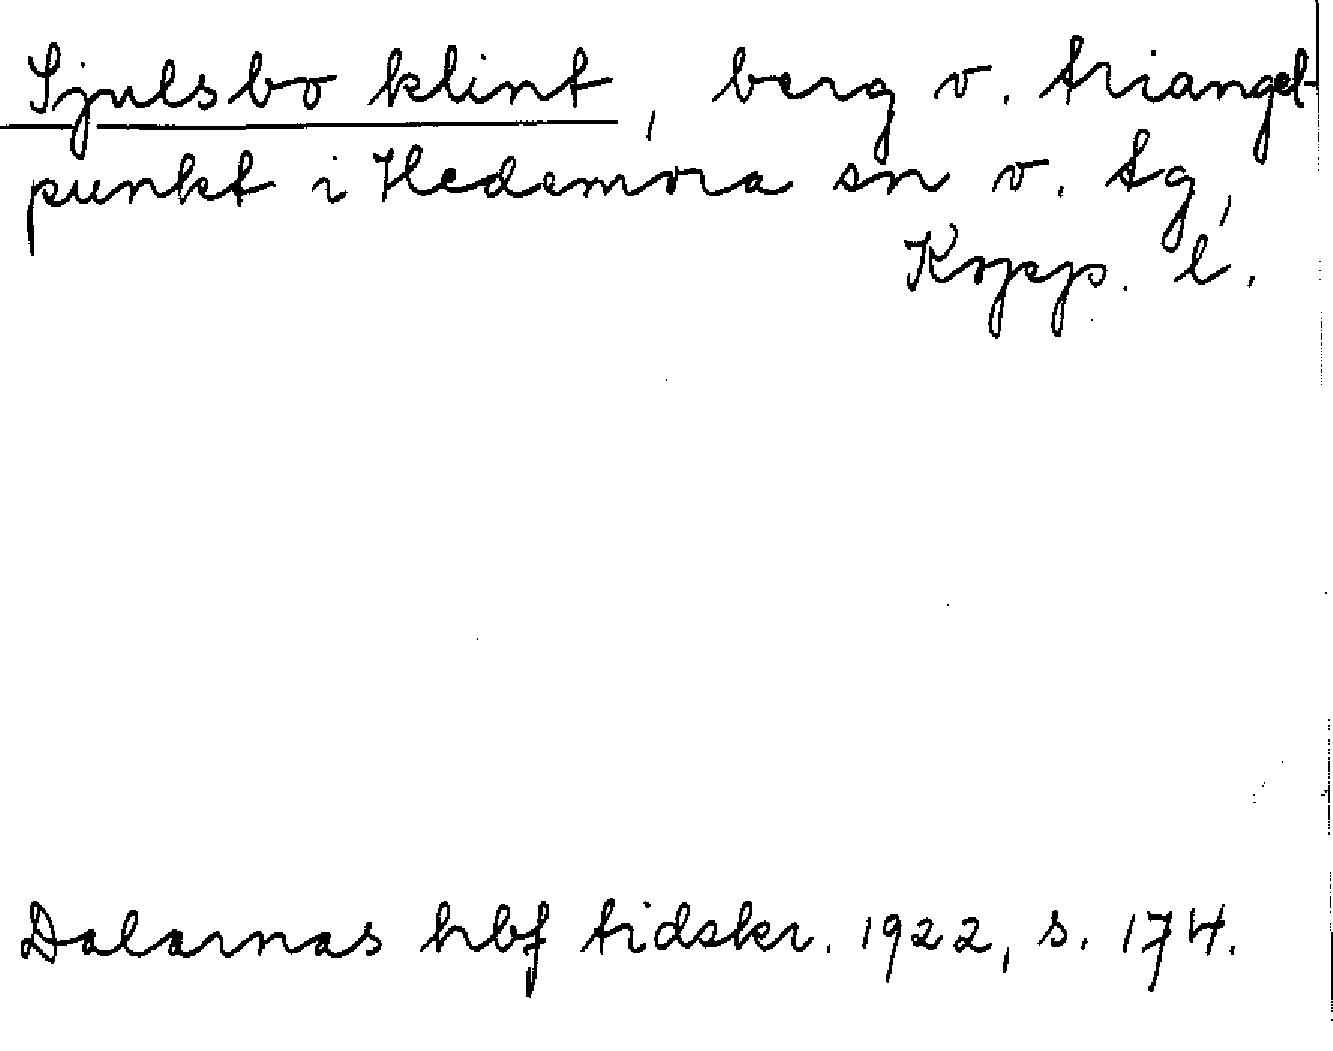 Sjulsbo klint, berg o. triangel-
punkt i Hedemora sn o. tg,
Kopp. l.
Dalarnas hbf tidskr. 1922, s. 174.